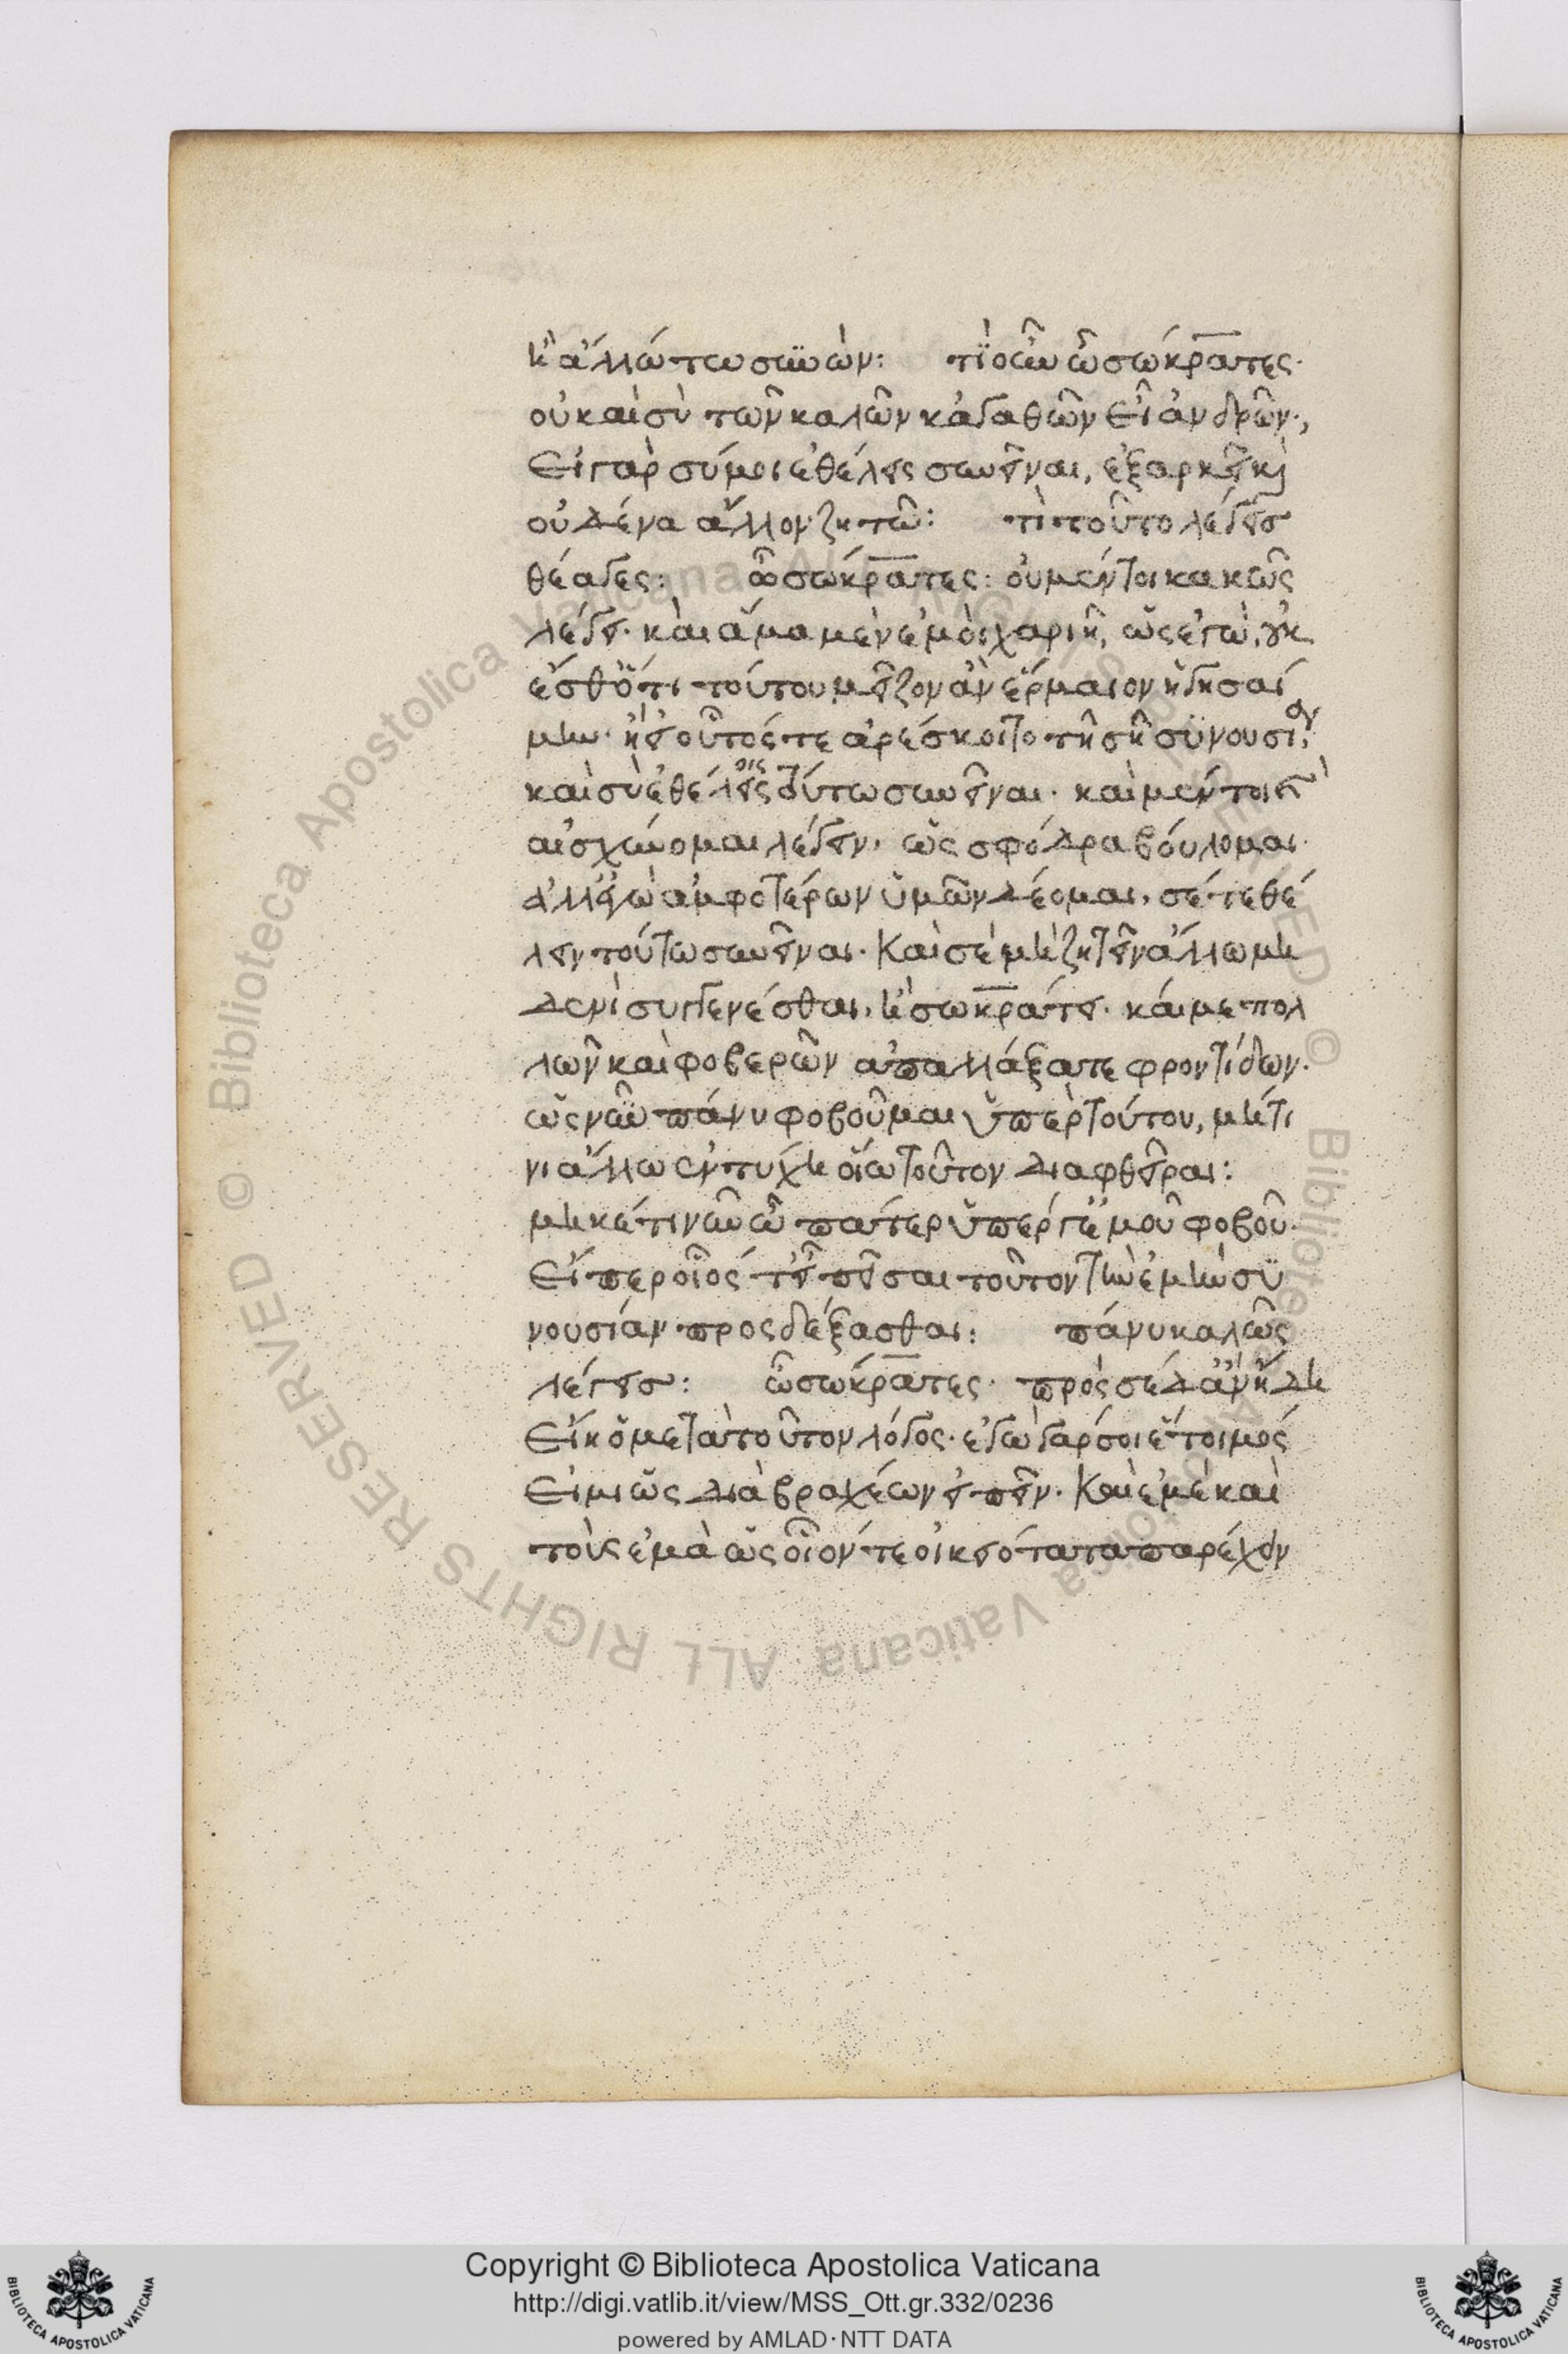 ἢ ἄλλῳ τῳ συνών: τί οὖν ὦ σώκρατες·
οὐ καὶ σὺ τῶν καλῶν κἀγαθῶν εἶ ἀνδρῶν·,
εἰ γὰρ σύ μοι ἐθέλεις συνεῖναι, ἐξαρκεῖ καὶ
οὐδένα ἄλλον ζητῶ: τί τοῦτο λέγεις
θέαγες: ὦ σώκρατες: οὐ μέντοι κακῶς
λέγει· καὶ ἅμα μὲν ἐμοὶ χαριῆ, ὡς ἐγὼ, οὐκ
ἔσθ' ὅτι τούτου μεῖζον ἂν ἕρμαιον ἡγησαί
μην· ἢ εἰ οὗτός τε ἀρέσκοιτο τῆ σῆ συνουσίᾳ,
καὶ σὺ ἐθέλεις τούτῳ συνεῖναι· καὶ μέντοι καὶ
αἰσχύνομαι λέγειν, ὡς σφόδρα βούλομαι·
ἀλλ' ἐγὼ ἀμφοτέρων ὑμῶν δέομαι, σέ τε θέ
λειν τούτω συνεῖναι· καὶ σὲ μὴ ζητεῖν ἄλλω μη
δενὶ συγγενέσθαι, ἢ σωκράτει· καί με πολ
λῶν καὶ φοβερῶν ἀπαλλάξατε φροντίδων·
ὡς νῦν πάνυ φοβοῦμαι ὑπὲρ τούτου, μή τι
νι ἄλλω ἐντύχη οἵω τοῦτον διαφθεῖραι:
μηκέτι νῦν ὦ πάτερ ὑπέρ γ' ἐμοῦ φοβοῦ·
εἴπερ οἷός τ' εἶ πεῖσαι τοῦτον τὴν ἐμὴν συ
νουσίαν προςδέξασθαι: πάνυ καλῶς
λέγεις: ὦ σώκρατες· πρὸς σὲ δ' ἂν ἤδη
εἴη ὁ μετὰ τοῦτον λόγος· ἐγὼ γάρ σοι ἕτοιμός
εἰμι ὡς διὰ βραχέων εἰπεῖν· καὶ ἐμὲ καὶ
τοὺς ἐμὰ ὡς οἷόν τε οἰκειότατα παρέχειν
Copyright © Biblioteca Apostolica Vaticana
http://digi.vatlib.it/view/MSS_Ott.gr.332/0236
powered by AMLAD·NTT DATA